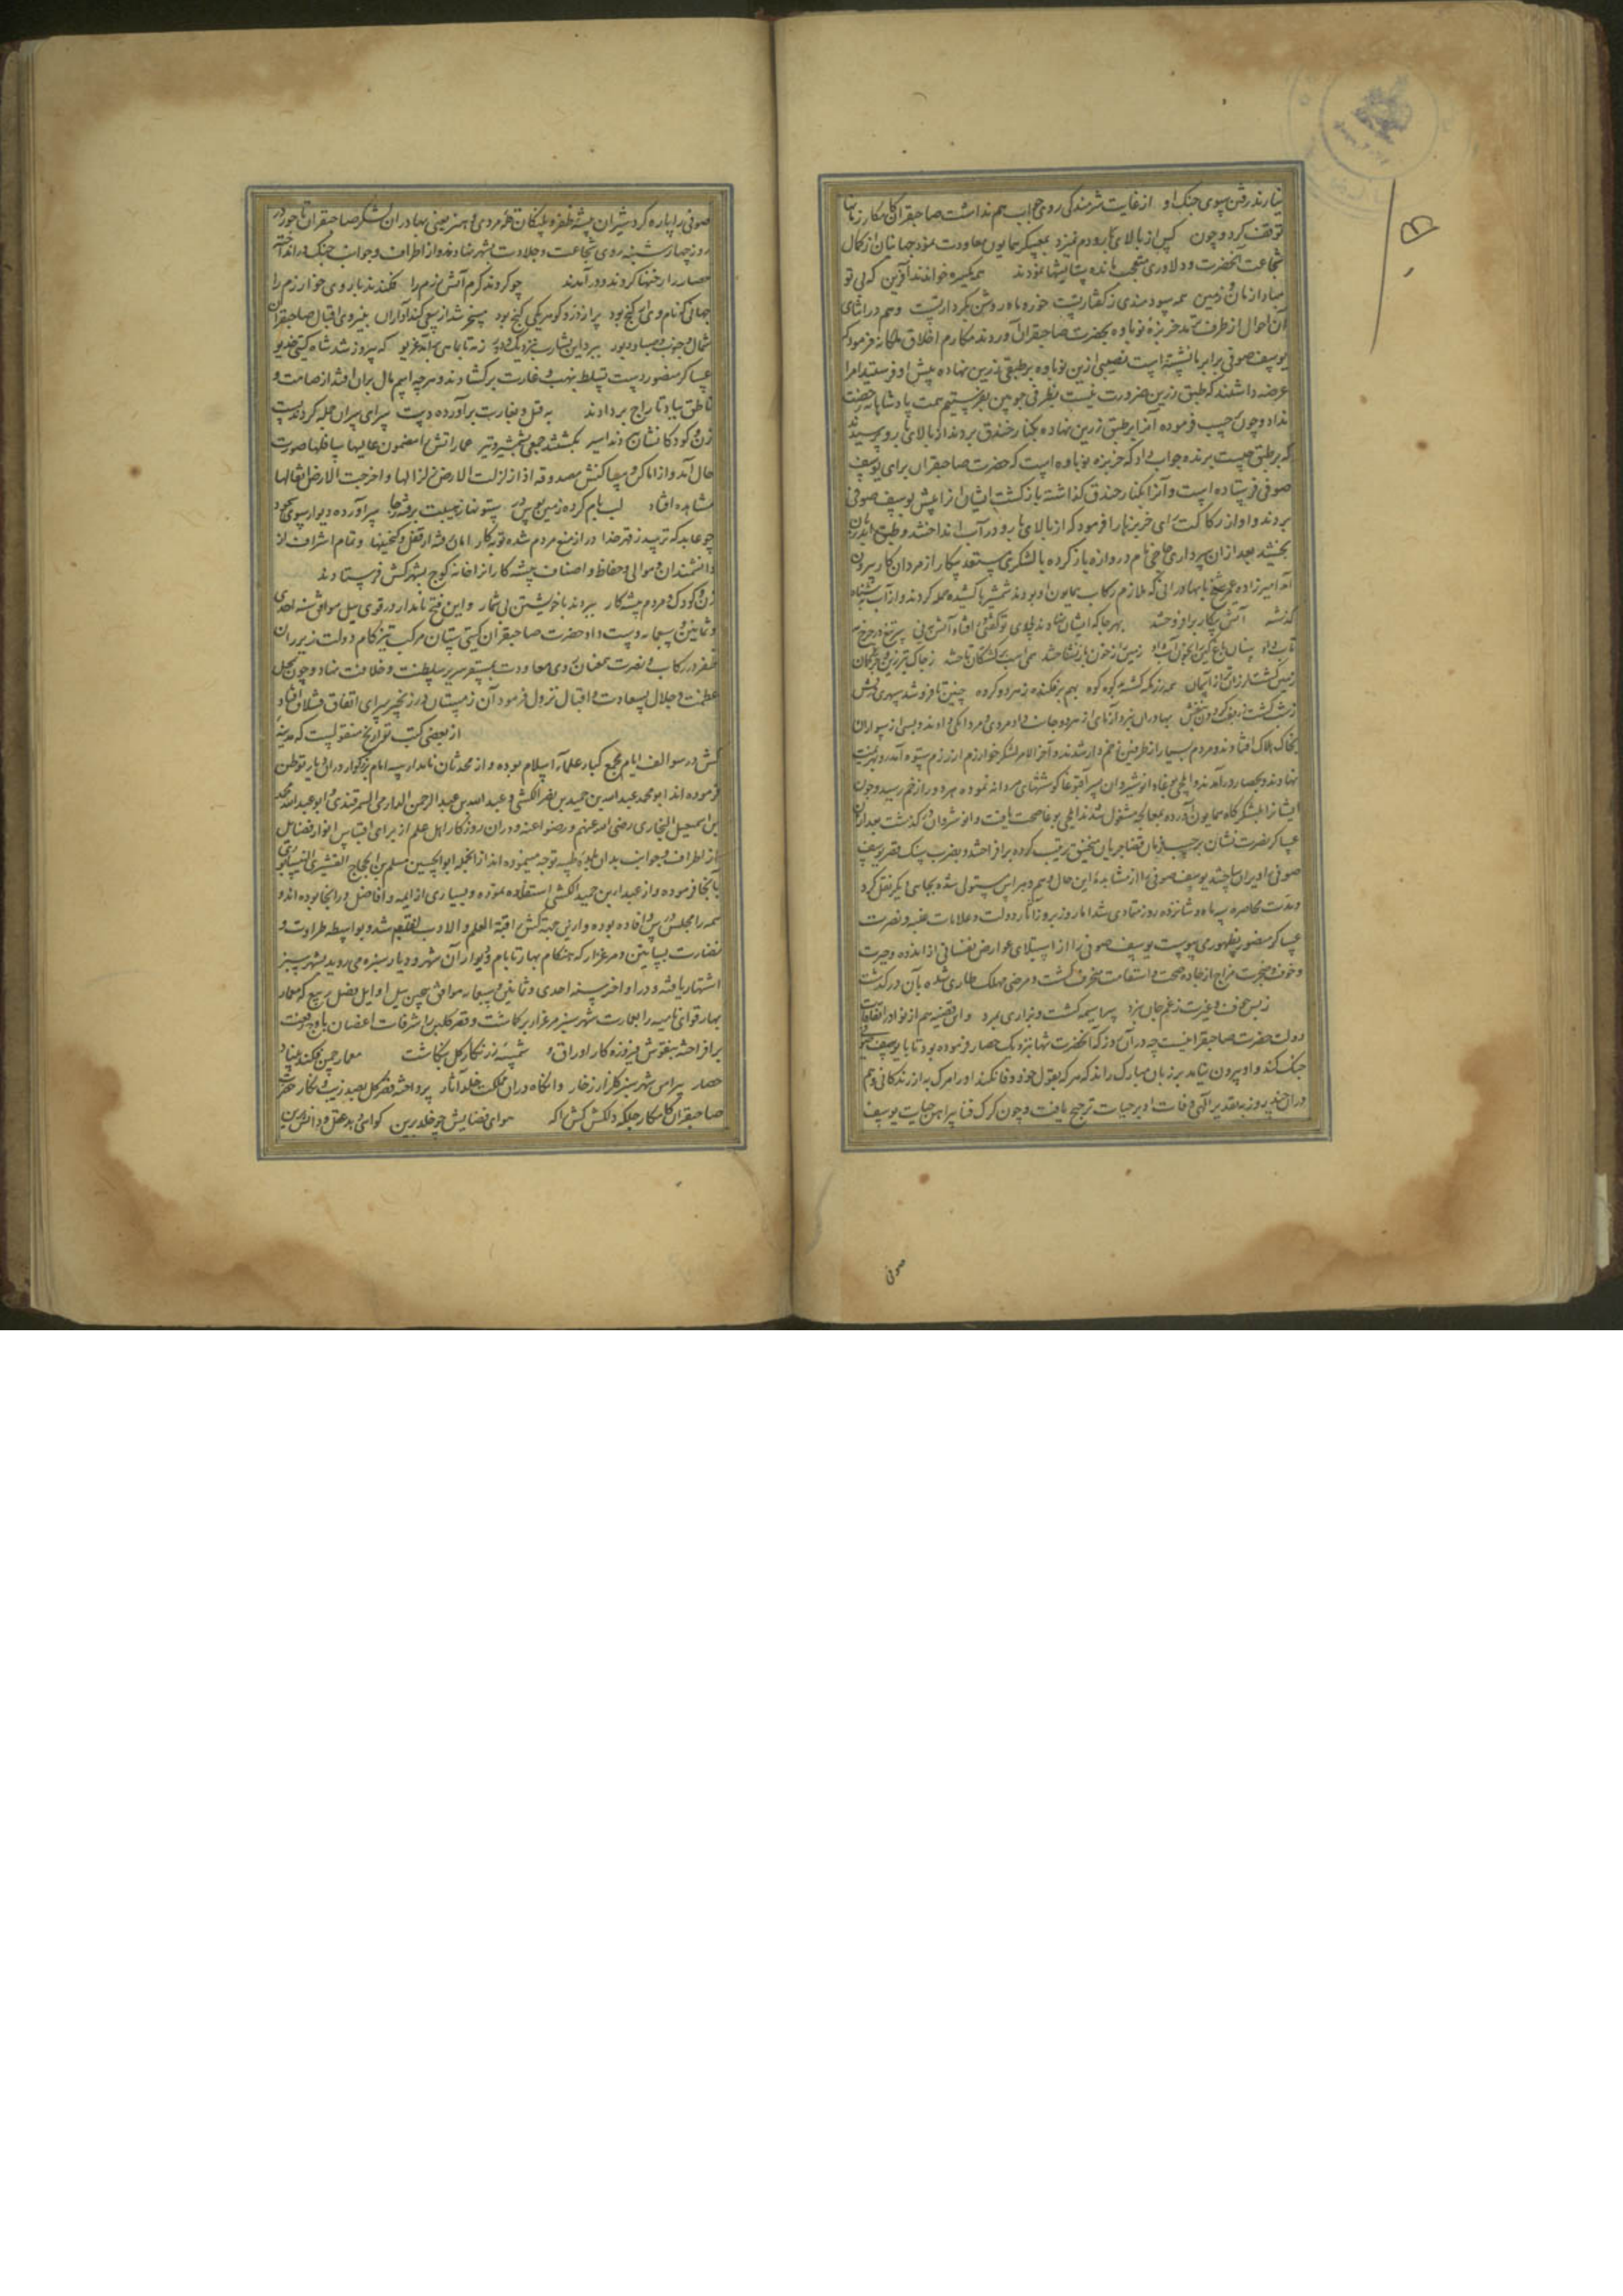 توقف کرد و چون کس از بالای بارو دم نمیزد بمعسکر همایون معاودت نمود جهانیان از کمال
شجاعت آنحضرت و دلاوری متعجب مانده ستایشها نمودند همه یکسره خواندند آفرین که بی تو
مبادا زمان و زمین همه سودمندی ز گفتار تست خور و ماه روشن بکردار تست و هم در اثنای
آن احوال از طرف ترمذ خربزهٔ نوباوه بحضرت صاحبقران آوردند مکارم اخلاق ملکانه فرمود که
یوسف صوفی برابر ما نشسته است نصیبی ازین نوباوه بر طبقی زرین نهاده پیش او فرستید امرا
عرضه داشتند که طبق زرین ضرورت نیست بظرفی چوبین بفرستیم همت پادشاهانه رخصت
نداد و چون حسب فرموده آنرا بر طبق زرین نهاده بکنار خندق بردند از بالای بارو پرسیدند
که بر طبق چیست برنده جواب داد که خربزه نوباوه است که حضرت صاحبقران برای یوسف
صوفی فرستاده است و آنرا بکنار خندق گذاشته بازگشت ایشان آنرا پیش یوسف صوفی
بردند و او از رکاکت رای خربزها را فرمود که از بالای بارو در آب انداختند و طبق ابدربان
بخشید بعد از ان سرداری حاجی نام دروازه باز کرده با لشکری مستعد پیکار از مردان کار بیرون
آمد امیرزاده عمر شیخ با بهادرانی که ملازم رکاب همایون او بودند شمشیرها کشیده حمله کردند و از آب بشناه
گذشته آتش پیکار برافروختند بهر جا که ایشان نهادند روی تو گفتی افتاد آتش بموی
زمین گشت لرزان تر از آسمان همه رزمگه کشته بد کوه کوه بهم برفکنده ز هر دو گروه چنین تا فرو شد سپهری درفش
ز شب گشت روی گردون بنفش بهادران نبرد آزمای از هر دو جانب داد مردی و مردانگی دادند و بسی از سواران
بخاک هلاک افتادند و مردم بسیار از طرفین زخم دار شدند و آخر الامر لشکر خوارزم از رزم بستوه آمده رو بهزیمت
نهادند و بحصار درآمدند و ایلچی بوغا و انوشیروان پسر آقبوغا کوششهای مردانه نموده هر دو را زخم رسید و چون
ایشانرا بلشکرگاه همایون آورده بمعالجه مشغول شدند ایلچی بوغا صحت یافت و انوشروان درگذشت بعد از ان
عساکر نصرت نشان بر حسب فرمان قضا جریان منجنیق ترتیب کرده برافراختند و بضرب سنگ قصر یوسف
صوفی را ویران ساختند یوسف صوفی را از مشاهدهٔ این حال وهم و هراس مستولی شده بجای دیگر نقل کرد
و مدت محاصره سه ماه و شانزده روز متمادی شد اما روز بروز آثار دولت و علامات غلبه و نصرت
عساکر منصور بظهور می پیوست یوسف صوفی را از استیلای عوارض نفسانی از اندوه و حیرت
و خوف و ضجرت مزاج از جاده صحت و استقامت منحرف گشت و مرضی مهلک طاری شده بآن درگذشت
ز بس خوف و غیرت ز غم جان نبرد سراسیمه گشت و بزاری بمرد و این قضیه هم از نوادر اتفاقات
دولت حضرت صاحبقرانیست چه در آن روز که آنحضرت تنها بنزدیک حصار فرموده بود تا با یوسف صوفی
جنگ کند و او بیرون نیامد بر زبان مبارک راند که هر که بقول خود وفا نکند او را مرگ به از زندگانی و هم
در ان چند روز بتقدیر الهی وفات او بر حیات ترجیح یافت و چون گرگ فنا پیراهن حیات یوسف
صوفی
صوفی را پاره کرد شیران بیشهٔ ظفر و پلنگان قلهٔ مردی و هنر یعنی بهادران لشکر صاحبقران
روز چهارشنبه روی شجاعت و جلادت بشهر نهادند و از اطراف و جوانب جنگ در انداخته
حصار را رخنها کردند و درآمدند چو کردند گرم آتش رزم را فکندند باروی خوارزم را
جهانی که نام وی گنج بود پر از زر و گوهر یکی گنج بود مسخر شد از سعی کندآوران بنیروی اقبال صاحبقران
شمال و جنوب و صبا و دبور ببرد این بشارت بنزدیک و دور زمه تا بماهی برآمد غریو که پیروز شد شاه گیتی خدیو
عساکر منصور دست تسلط بنهب و غارت برگشادند و هر چه اسم مال بران افتد از صامت و
ناطق بباد تاراج بر دادند به قتل و بغارت برآورده دست سرای سران جمله کردند پست
زن و کودکانشان ببردند اسیر بکشتند جمعی بشمشیر و تیر عماراتش را مضمون عالیها سافلها صورت
حال آمد و از اماکن و مساکنش مصدوقه اذا زلزلت الارض زلزالها و اخرجت الارض اثقالها
مشاهده افتاد لب بام کرده زمین بوس ستونها ز هیبت برفته ز جا سرآورده دیوار سوی سجود
چو عابد که ترسد ز قهر خدا در از منع مردم شده توبه کار امان و تمام اشراف از
دانشمندان و موالی و حفاظ و اصناف پیشه کارانرا خانه کوچ بشهر کش فرستادند
زن و کودک و مردم پیشه کار ببردند با خویشتن بی شمار و این فتح نامدار در قوی ییل موافق سنه احدی
و ثمانین و سبعمایه دست داد و حضرت صاحبقران گیتی ستان مرکب تیزکام دولت زیر ران
ظفر در رکاب و نصرت همعنان روی معاودت بمستقر سریر سلطنت و خلافت نهاد و چون بمحل
عظمت و جلال بسعادت و اقبال نزول فرمود آن زمستان در زنجیر سرای اتفاق قشلاق افتاد
از بعضی کتب تواریخ منقولست که مدینهٔ
کش در سوالف ایام مجمع کبار علماء اسلام بوده و از محدثان نامدار سه امام بزرگوار در ان دیار توطن
فرموده اند ابو محمد عبدالله بن حمید بن نصر الکشی و عبدالله بن عبدالرحمن الدارمی السمرقندی و ابو عبدالله محمد
بن اسمعیل البخاری رضی الله عنهم و رضوا عنه و در ان روزگار اهل علم از برای اقتباس انوار فضایل
از اطراف و جوانب بدان بلدهٔ طیبه توجه مینموده اند از انجمله ابو الحسین مسلم بن الحجاج القشیری النیسابوری
بآنجا فرموده و از عبد بن حمید الکشی استفاده نموده و بسیاری از ایمه و افاضل در انجا بوده اند و
همه را مجلس درس و افاده بوده و از این جهت کش را قبة العلم و الادب لقب شد و بواسطه طراوت و
نضارت بساتین و مرغزار که هنگام بهار تا بام و دیوار آن شهر و دیار سبزه می روید بشهر سبز
اشتهار یافته و در اواخر سنه احدی و ثمانین و سبعمایه موافق بیچین ییل اوایل فصل ربیع که معمار
بهار قوای نامیه را بعمارت شهر سبز مرغزار برگماشت و قصر گلبن را شرفات اغصان باوج رفعت
برافراخته بنقوش فیروزه کار اوراق و شمسهٔ زرنگار گل بنگاشت معمار چمن فکند بنیاد
حصار پیرامن شهر سبز گلزار وانگاه دران مملکت خلد آثار پرداخته قصر گل بصد زیب و نگار حضرت
صاحبقران کامکار جلکه دلکش کش را که هوای فضایش چو خلد برین